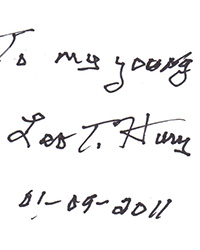 To my young
Leo T. Hury
01-09-2011